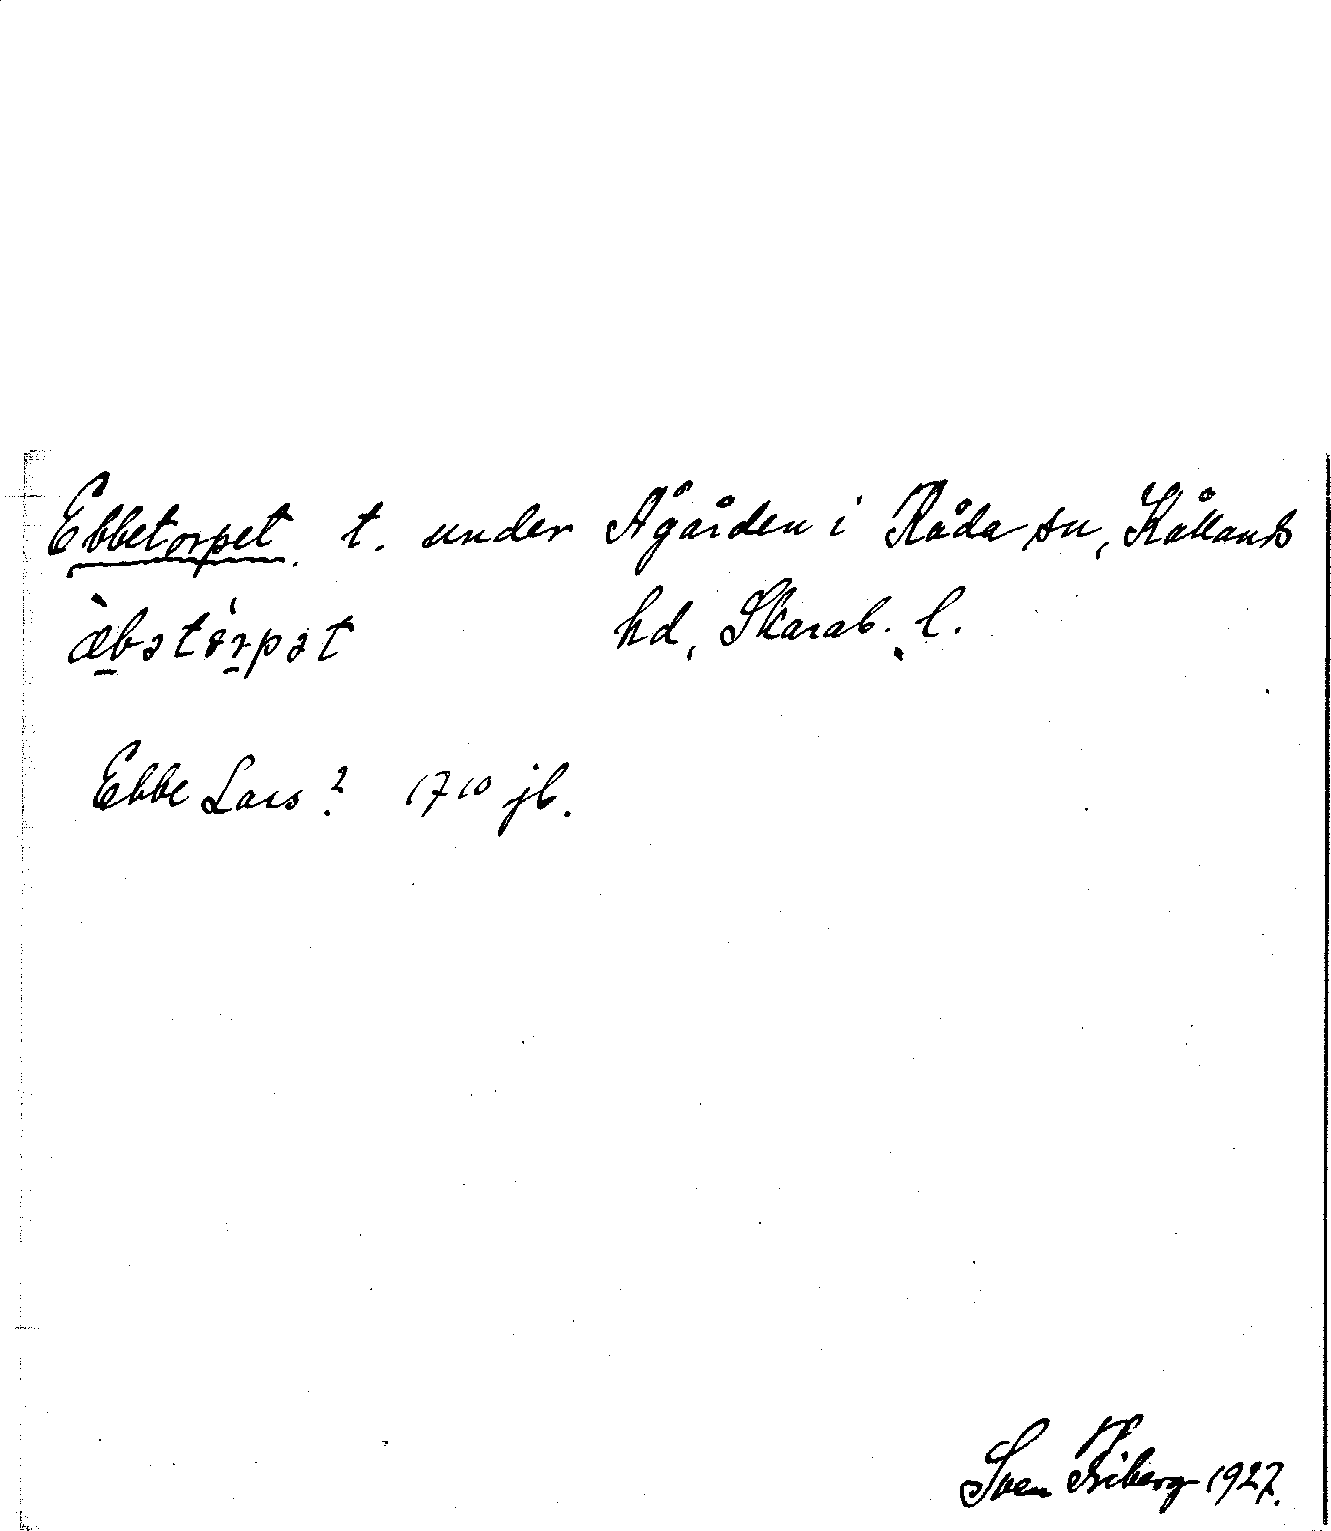 Ebbetorpet. t. under Ågården i Råda sn, Kållands
æ̀bətórpət hd, Skarab. l.
Ebbe Lars? 1710 jb.
Sven Friberg 1927.